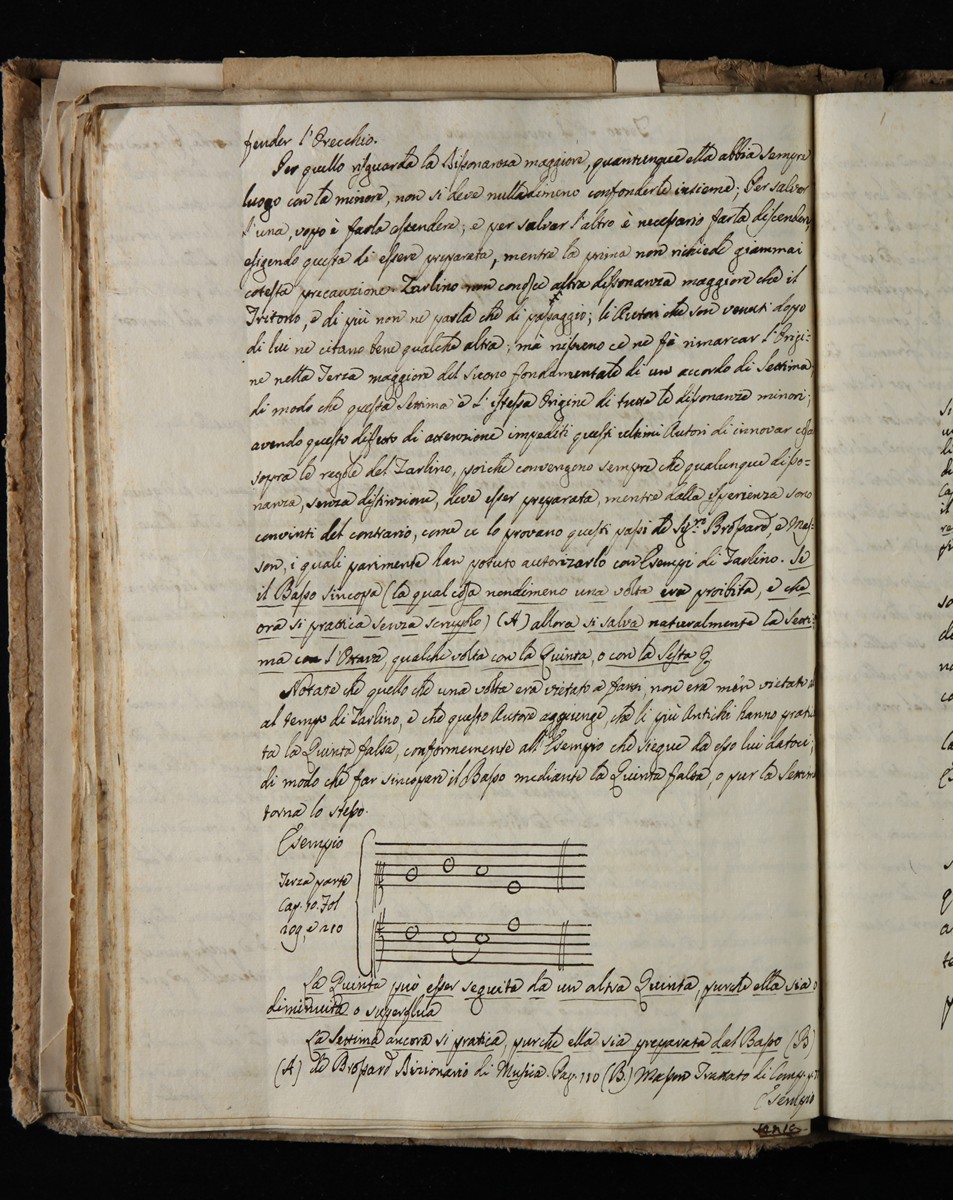 fender l'Orecchio.
Per quello risguarda la Dissonanza maggiore, quantunque ella abbia sempre
luogo con la minore, non si deve nulladimeno confonderle insieme; Per salvar
l'una, uopo è farla ascendere; e per salvar l'altro è necessario farla descendere,
esigendo questa di essere preparata, mentre la prima non richiede giammai
cotesta precauzione. Zarlino non conosce altra dissonanza maggiore che il
Tritono, e di più non ne parla che di passaggio; li Autori che son venuti dopo
di lui ne citano bene qualche altra; mà nissuno ce ne fà rimarcar l'Origi-
ne nella Terza maggiore del suono fondamentale di un accordo di Settima
di modo che questa Settima è l'istessa Origine di tutte le dissonanze minori;
avendo questo diffetto di attenzione impediti questi ultimi Autori di innovar cosa
sopra le regole del Zarlino, poiche convengono sempre che qualunque disso-
nanza, senza distinzione, deve esser preparata, mentre dalla esperienza sono
convinti del contrario, come ce lo provano questi passi de Sg.ri Brossard, e Mas-
son, i quali parimente han potuto autorizarlo con Esempi di Zarlino. Se
il Basso sincopa (la qual cosa nondimeno una volta era proibita, e che
ora si prattica senza scruplo) (A) allora si salva naturalmente la Setti-
ma con l'Ottava, qualche volta con la Quinta, o con la Sesta &
Notate che quello che una volta era vietato a farsi, non era men vietato
al tempo di Zarlino, e che questo Autore aggiunge, che li più Antichi hanno prati
ta la Quinta falsa, conformemente all'Esempio che siegue da esso lui datoci;
di modo che far sincopare il Basso mediante la Quinta falsa, o pur la Settima
torna lo stesso.
Esempio
Terza parte
Cap. 30. Fol
209, e 210
La Quinta può esser seguita da un altra Quinta, purche ella sia o
diminuita o superflua
La Settima ancora si prattica, purche ella sia preparata dal Basso (B)
(A) De Brossard Dizionario di Musica. Pag. 110 (B.) Masson Trattato di Comp. p.
Esempio